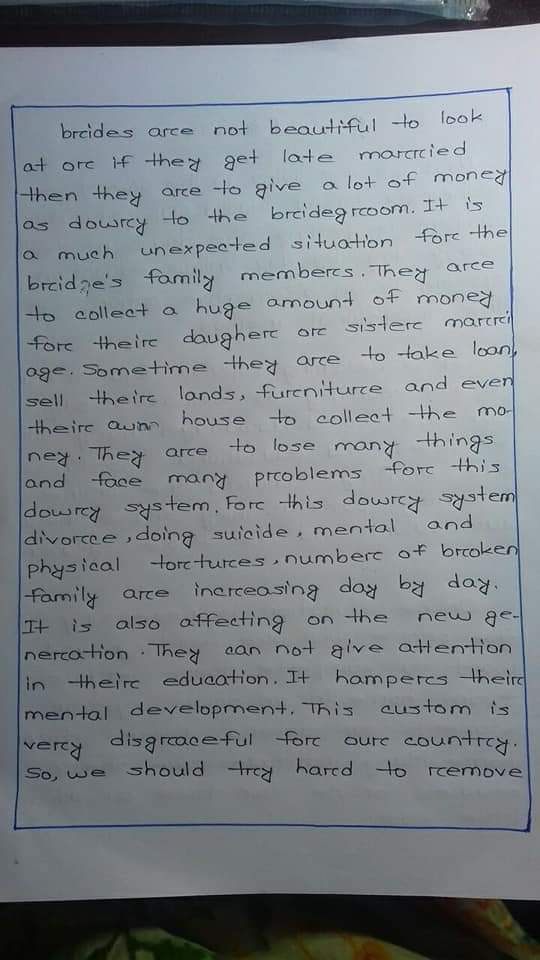 brides are not beautiful to look
at or if they get late married
then they are to give a lot of money
as dowry to the bridegroom. It is
a much unexpected situation for the
bride's family members. They are
to collect a huge amount of money
for their daugher or sister marri
age. Sometime they are to take loan,
sell their lands, furniture and even
their own house to collect the mo-
ney. They are to lose many things
and face many problems for this
dowry system. For this dowry system
divorce, doing suicide, mental and
physical tortures, number of broken
family are increasing day by day.
It is also affecting on the new ge-
neration. They can not give attention
in their education. It hampers their
mental development. This custom is
very disgraceful for our country.
So, we should try hard to remove